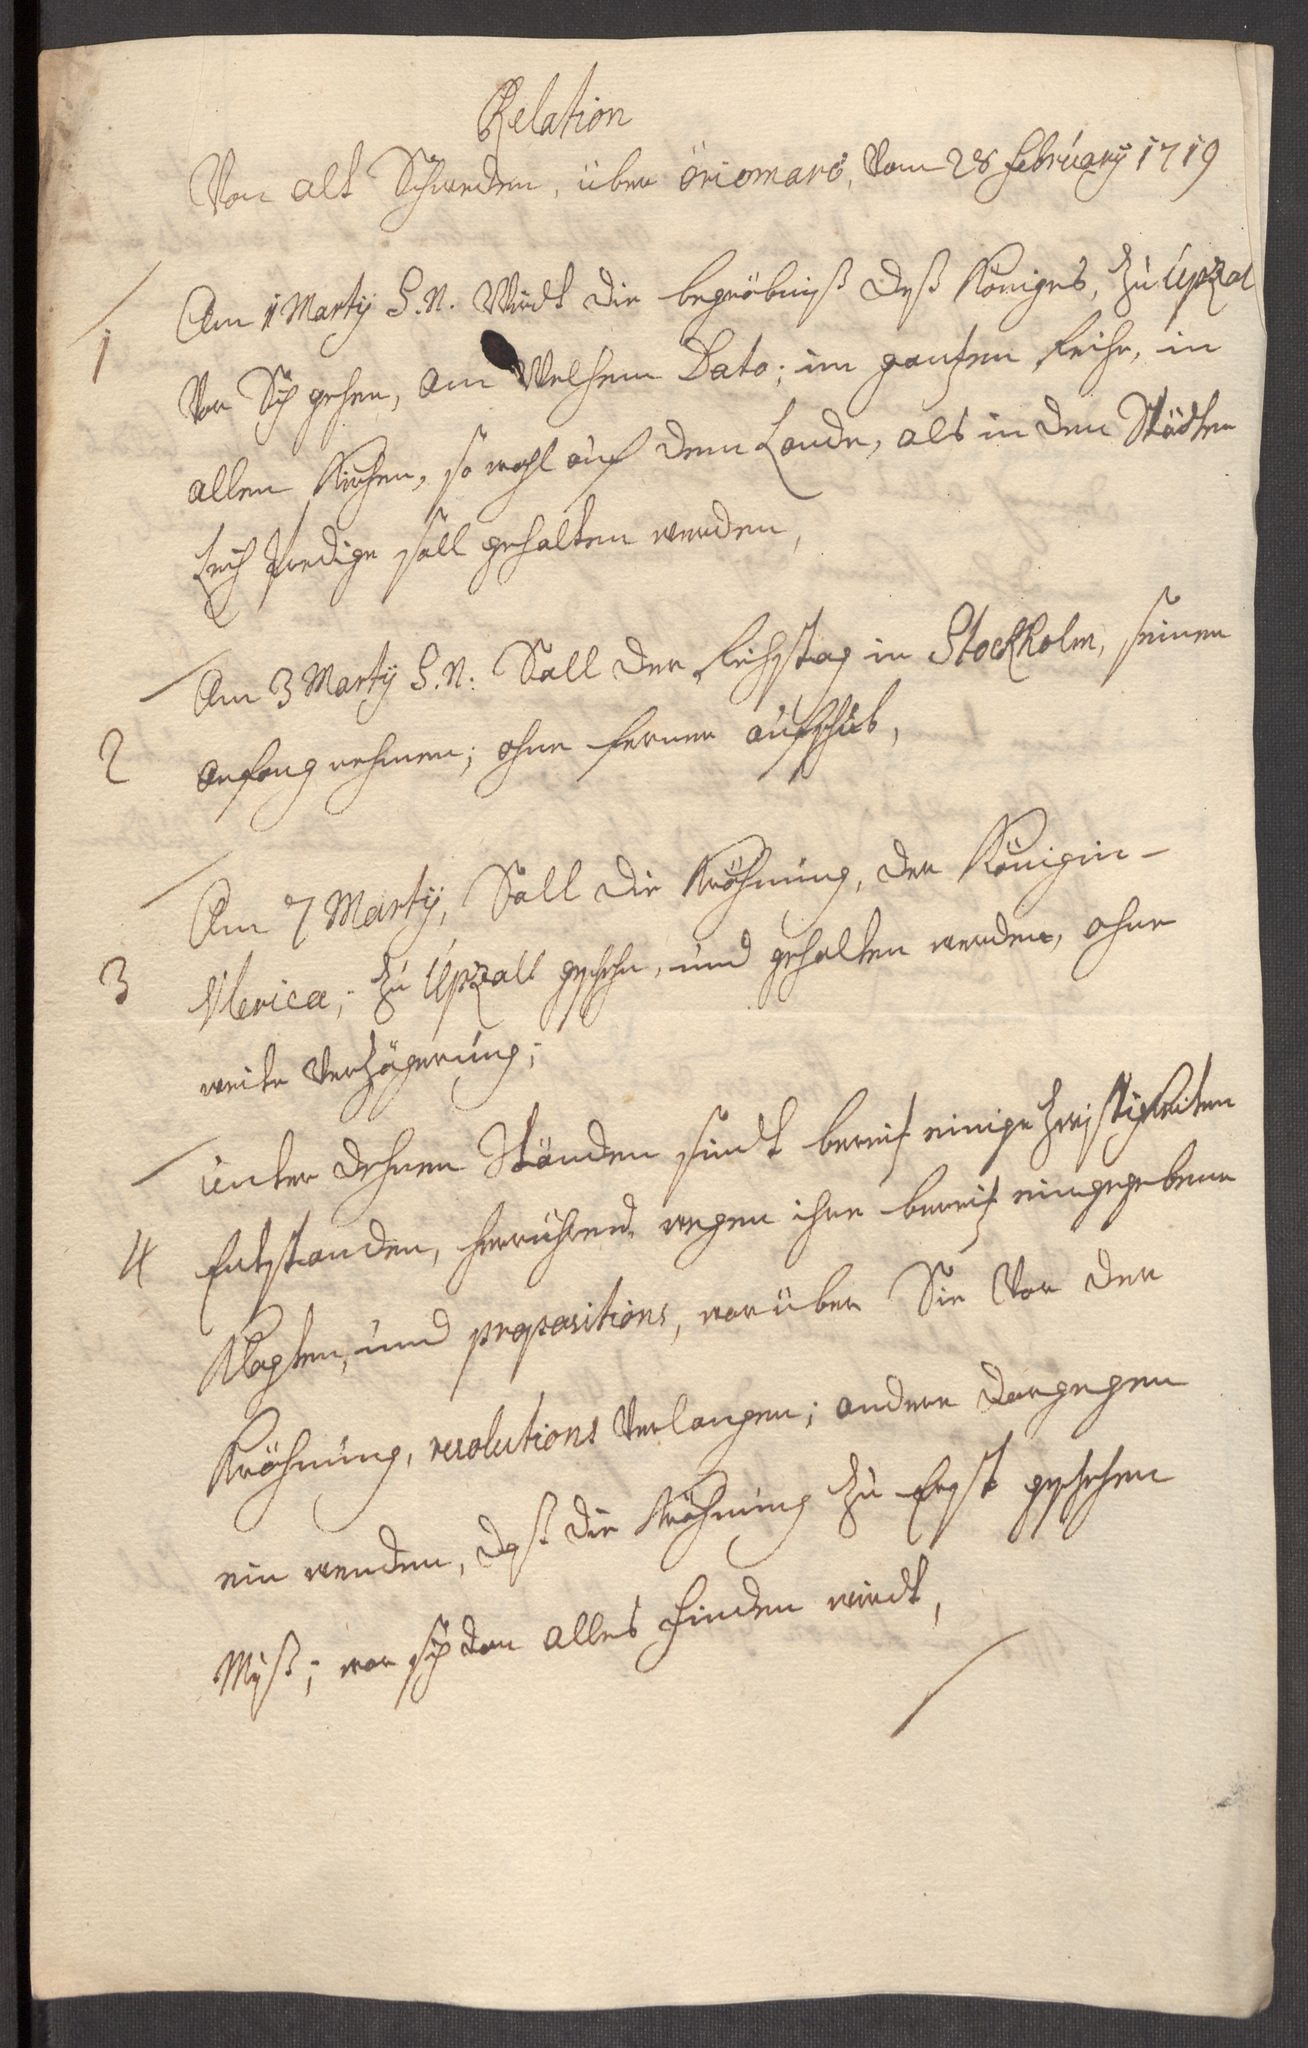 Relation
Von alt Schweden, über öriomarò, Vom 28 february 1719
1 Am 1 Martÿ S.N. Wirdt die begräbniß deß Königes, zu Upzal
Vor Sich gehen, Am Welchem Dato; im gantzen Reiche, in
allen Kirchen, so wohl auf dem Lande, als in den Städten
Leich Predige soll gehalten werden,
2 Am 3 Martÿ S.N: Soll der Reichstag in Stockholm, seinen
anfang nehmen; ohne ferner aufschub,
3 Am 7 Martÿ, Soll die Kröhnung, der Königin-
Ulerica, zu Upzall geschehn, und gehalten werden, ohne
weite Verzögerung;
4 unter dehnen Ständen sindt bereitz einige Zwistigkeiten
Entstanden, herrührend, wegen ihre bereitz eingegebene
Klagten, und propositions, worüber Sie Vor der
Kröhnung, resolutions Verlangen; andere dargegen
ein wenden, daß die Kröhnung zu Erst geschehen
Müß; wor sich dan alles finden wirdt,